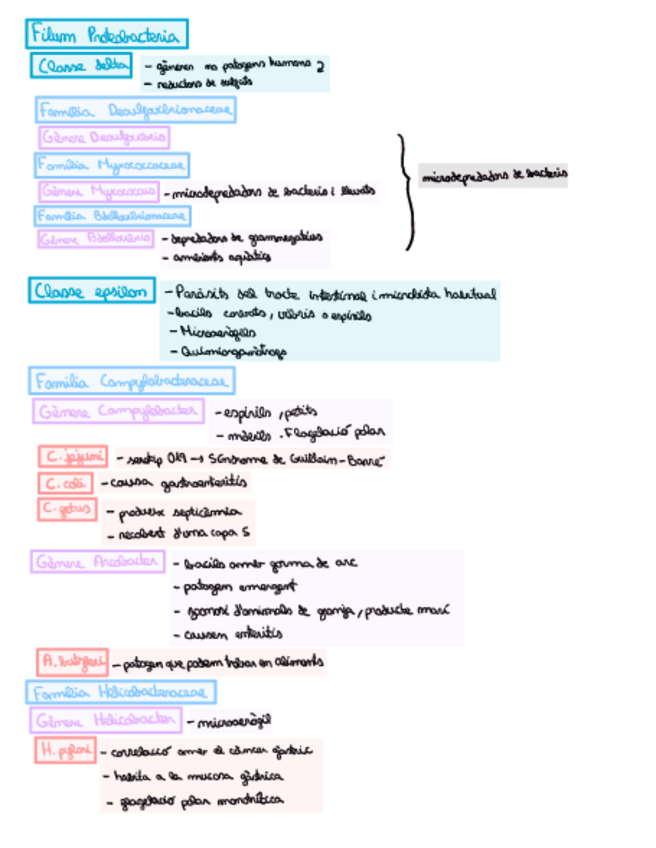 Filum Proteobacteria
Classe delta - gèneres no patogens humans 2
- reductors de sulfats
Família Desulfovibrionaceae
Gènere Desulfovibrio
Família Myxococcaceae
microdepredadors de bacteris
Gènere Myxococcus - microdepredadors de bacteris i llevats
Família Bdellovibrionaceae
Gènere Bdellovibrio - depredadors de gramnegatius
- ambients aquàtics
Classe epsilon - Paràsits del tracte intestinal i microbiota habitual
- bacils corvats, vibris o espirils
- Microaeròfils
- Quimiorganòtrofs
Familia Campylobacteraceae
Gènere Campylobacter - espirils, petits
- mòbils. Flagelació polar
C. jejuni - serotip O19 → Síndrome de Guillain-Barré
C. coli - causa gastroenteritis
C. fetus - produeix septicèmia
- recobert d'una capa S
Gènere Arcobacter - bacils amb forma de arc
- patogen emergent
- zoonosi d'animals de granja, producte marí
- causen enteritis
A. butzleri - patogen que podem trobar en aliments
Família Helicobacteraceae
Gènere Helicobacter - microaeròfil
H. pylori - correlació amb el càncer gàstric
- habita a la mucosa gàstrica
- flagelació polar monotrítica